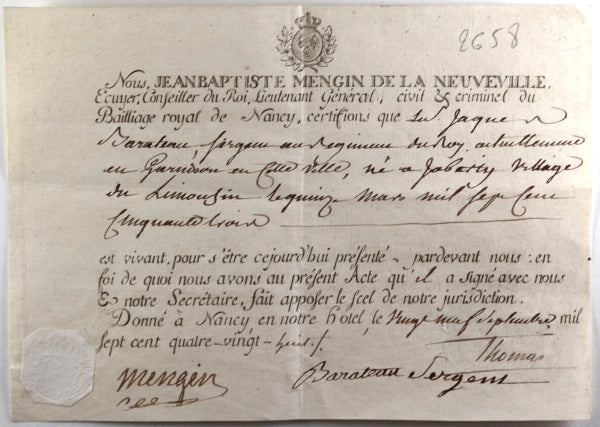 2658
Nous, JEAN BAPTISTE MENGIN DE LA NEUVEVILLE,
Ecuyer, Conseiller du Roi, Lieutenant Général, civil & criminel du
Bailliage royal de Nancy, certifions que Sr. Jaque
Barateau Sergent au Regiment du Roy, actuellement
en Garnison en Cette Ville, né a Village
du Limousin le quinze Mars mil Sept Cent
Cinquante trois
est vivant, pour s'être cejourd'hui présenté pardevant nous: en
foi de quoi nous avons au présent Acte qu'il a signé avec nous
& notre Secrétaire, fait apposer le scel de notre jurisdiction.
Donné à Nancy en notre hôtel, le Vingt neuf Septembre mil
sept cent quatre-vingt-huit.
Thomas
Mengin
Barateau Sergent